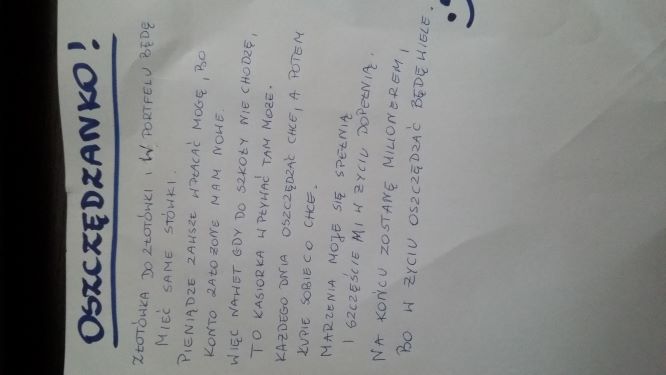 OSZCZĘDZANKO!
ZŁOTÓWKA DO ZŁOTÓWKI I W PORTFELU BĘDĘ
MIEĆ SAME STÓWKI.
PIENIĄDZE ZAWSZE WPŁACAĆ MOGĘ, BO
KONTO ZAŁOŻONE MAM NOWE.
WIĘC NAWET GDY DO SZKOŁY NIE CHODZĘ,
TO KASIORKA WPŁYWAĆ TAM MOŻE.
KAŻDEGO DNIA OSZCZĘDZAĆ CHCE, A POTEM
KUPIE SOBIE CO CHCE.
MARZENIA MOJE SIĘ SPEŁNIĄ
I SZCZĘŚCIE MI W ŻYCIU DOPEŁNIĄ.
NA KOŃCU ZOSTANĘ MILIONEREM,
BO W ŻYCIU OSZCZĘDZAĆ BĘDĘ WIELE.